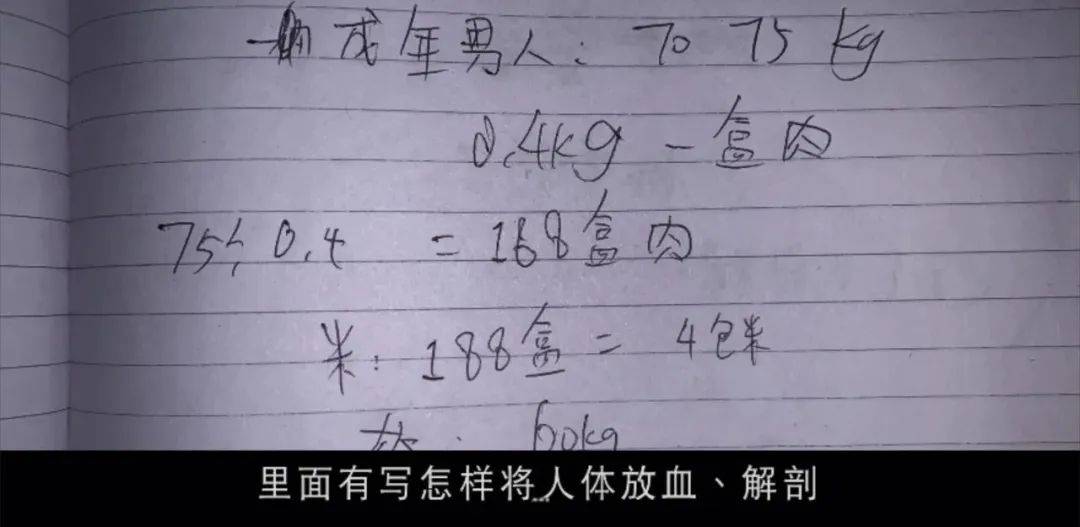 成年男人: 70 75 kg
0.4kg 一盒肉
75÷0.4 = 188盒肉
米: 188盒 = 4包米
60kg
里面有写怎样将人体放血、解剖